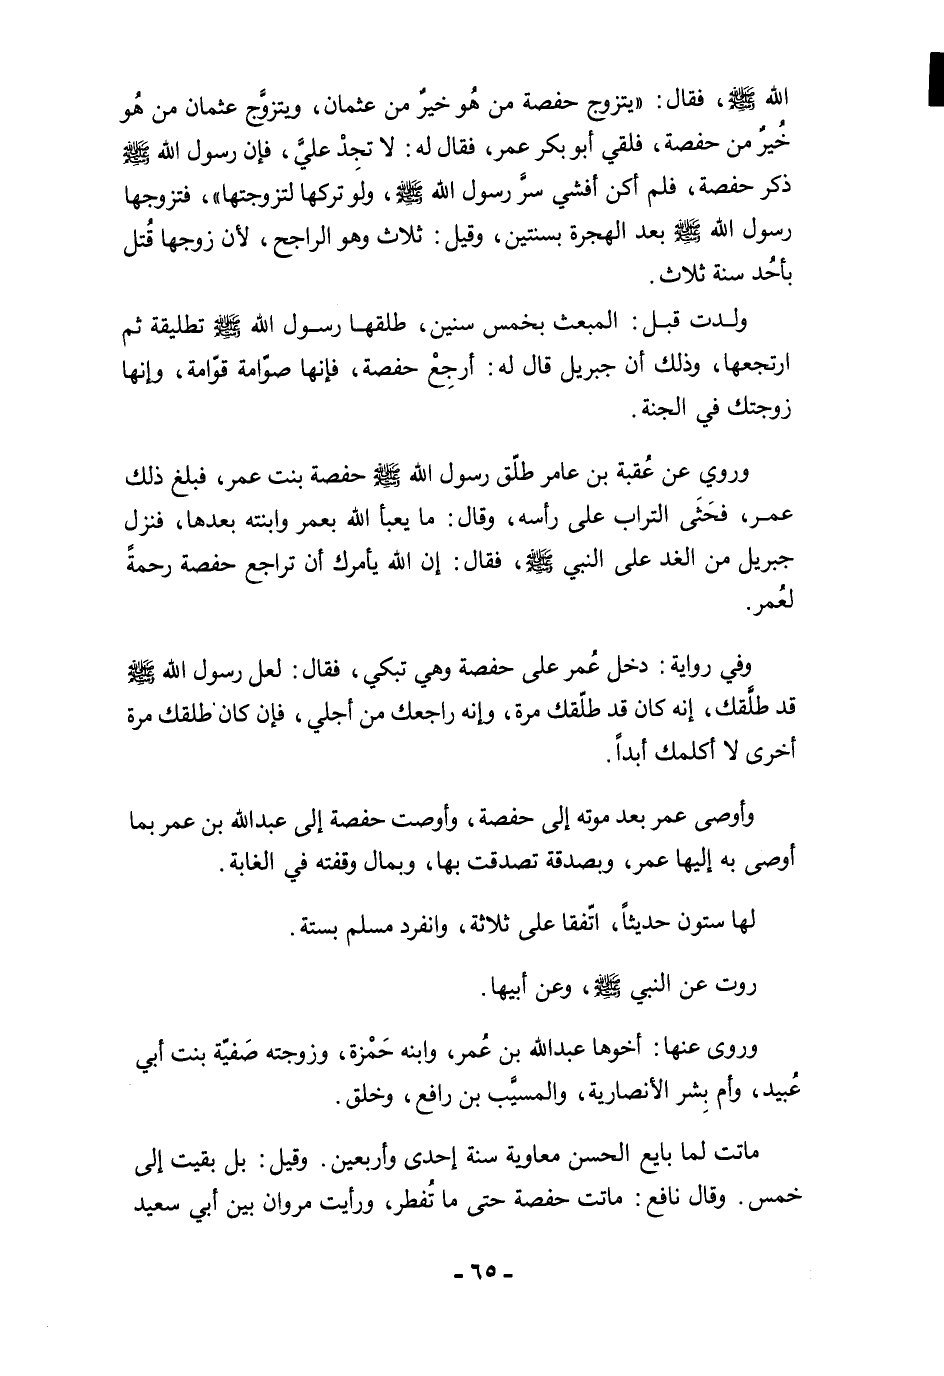 الله ﷺ، فقال: «يتزوج حفصة من هُو خيرٌ من عثمان، ويتزوَّج عثمان من هُو
خُيرٌ من حفصة، فلقي أبو بكر عمر، فقال له: لا تجِدْ عليَّ، فإن رسول الله ﷺ
ذكر حفصة، فلم أكن أفشي سرَّ رسول الله ﷺ، ولو تركها لتزوجتها»، فتزوجها
رسول الله ﷺ بعد الهجرة بسنتين، وقيل: ثلاث وهو الراجح، لأن زوجها قُتل
بأحُد سنة ثلاث.
ولدت قبل: المبعث بخمس سنين، طلقها رسول الله ﷺ تطليقة ثم
ارتجعها، وذلك أن جبريل قال له: أرجِعْ حفصة، فإنها صوّامة قوّامة، وإنها
زوجتك في الجنة.
وروي عن عُقبة بن عامر طلّق رسول الله ﷺ حفصة بنت عمر، فبلغ ذلك
عمر، فحَثَى التراب على رأسه، وقال: ما يعبأ الله بعمر وابنته بعدها، فنزل
جبريل من الغد على النبي ﷺ، فقال: إن الله يأمرك أن تراجع حفصة رحمةً
لعُمر.
وفي رواية: دخل عُمر على حفصة وهي تبكي، فقال: لعل رسول الله ﷺ
قد طلَّقك، إنه كان قد طلّقك مرة، وإنه راجعك من أجلي، فإن كان طلقك مرة
أخرى لا أكلمك أبداً.
وأوصى عمر بعد موته إلى حفصة، وأوصت حفصة إلى عبدالله بن عمر بما
أوصى به إليها عمر، وبصدقة تصدقت بها، وبمال وقفته في الغابة.
لها ستون حديثاً، اتّفقا على ثلاثة، وانفرد مسلم بستة.
روت عن النبي ﷺ، وعن أبيها.
وروى عنها: أخوها عبدالله بن عُمر، وابنه حَمْزة، وزوجته صَفيّة بنت أبي
عُبيد، وأم بِشر الأنصارية، والمسيَّب بن رافع، وخلق.
ماتت لما بايع الحسن معاوية سنة إحدى وأربعين. وقيل: بل بقيت إلى
خمس. وقال نافع: ماتت حفصة حتى ما تُفطر، ورأيت مروان بين أبي سعيد
- ٦٥ -